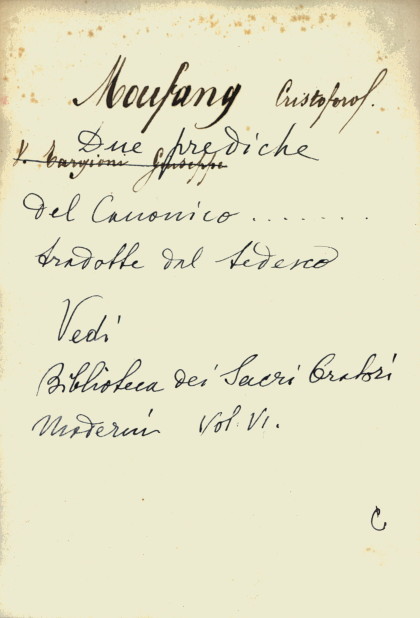 Moufang Cristoforo
Due prediche
V. Bargioni Giuseppe
del Canonico ........
tradotte dal tedesco
Vedi
Biblioteca dei Sacri Oratori
Moderni Vol. VI.
C